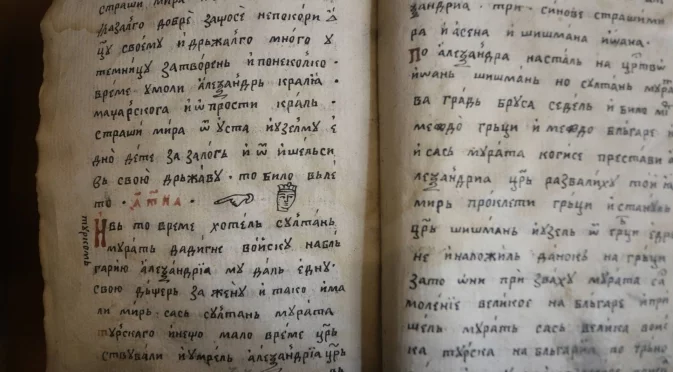 страши мира
казалго добре защосе непокори
цꙋ своемꙋ и дрьжалго много ꙋ
темницꙋ затворень и понеколко
време ꙋмоли алеѯандрь кралꙗ
маџарскога и ѿ прости краль
страши мира ѿ ꙋста и ꙋзелмꙋ е
дно дете за залогь и ѿ ишельси
вь свою дрьжавꙋ то било вьле
то ҂атпа
тꙋркомь
И вь то време хотель сꙋлтань
мꙋрать дадигне воискꙋ на бль
гарию алеѯандрїа мꙋ даль еднꙋ
свою дьщерь за женꙋ и тако има
ли мирь сась сꙋлтань мꙋрата
тꙋрскаго и нещо мало време црь
ствꙋвали и ꙋмрель алеѯандрїа црь
ѯандриа три синове страшими
ра и асена и шишмана иѡана
По алеѯандра насталь на
иѡань шишмань но сꙋлтань мꙋра
ва градь брꙋса седель и било
мегю грьци и мегю бльгаре
и сась мꙋрата когисе престави
леѯандриа црь развалихꙋ
мирь проклети грьци и станꙋль
црь шишмань и ꙋзель ѿ грьци едре
не и наложиль данокь на грьци
зато ѡни при звахꙋ мꙋрата са
моленїе великое на бльгаре и при
шель мꙋрать сась велика вои
ка тꙋрска на бльгарїа по